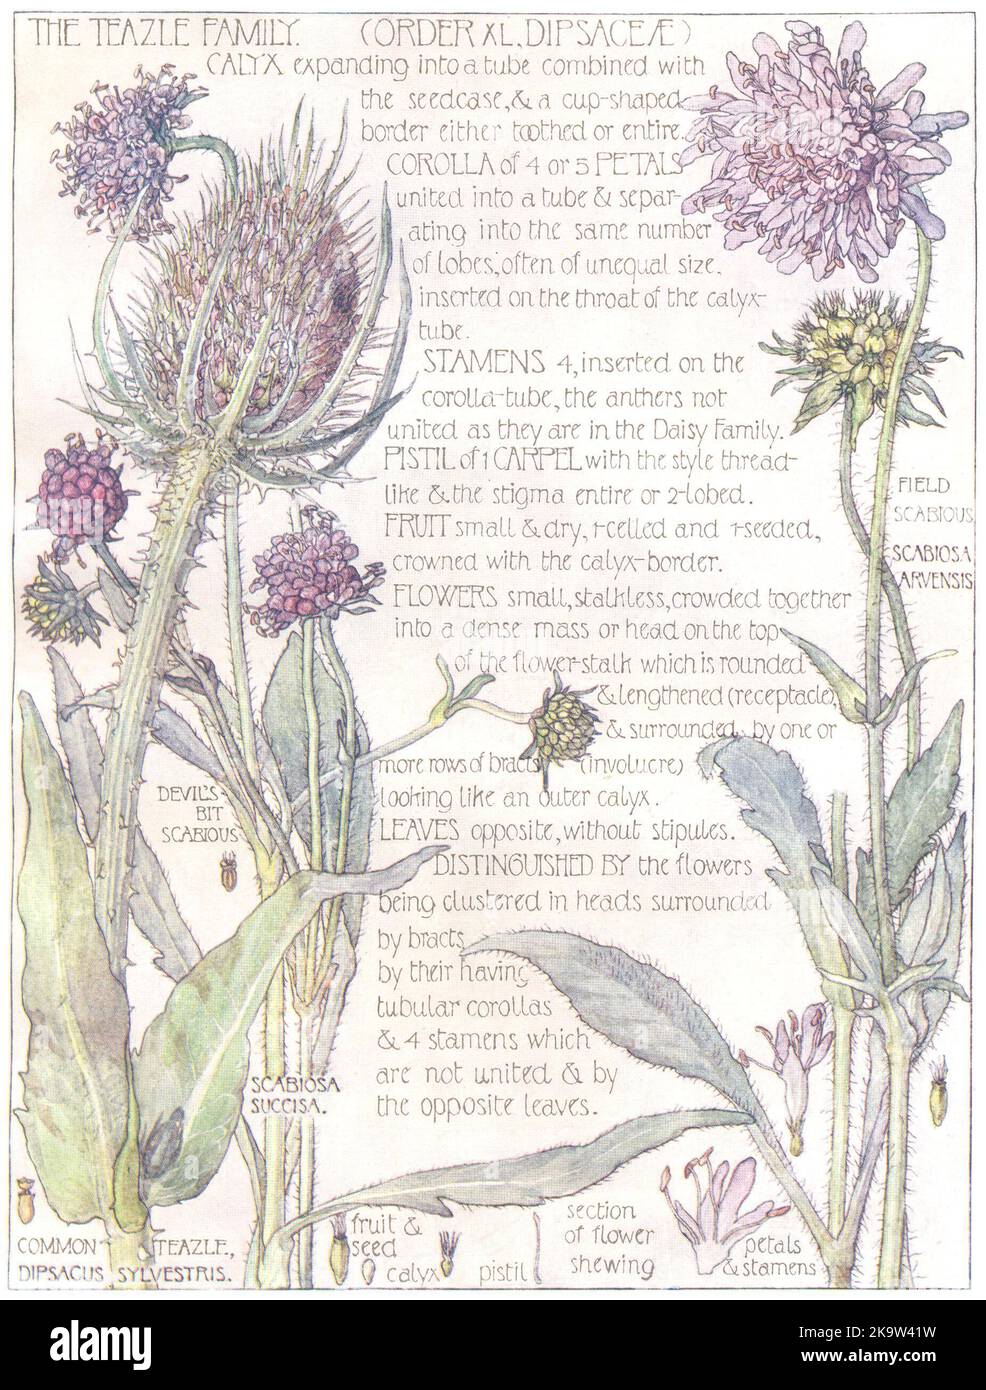 THE TEAZLE FAMILY. (ORDER XL, DIPSACEÆ)
CALYX expanding into a tube combined with
the seedcase, & a cup-shaped
border either toothed or entire.
COROLLA of 4 or 5 PETALS
united into a tube & separ-
ating into the same number
of lobes, often of unequal size,
inserted on the throat of the calyx-
tube.
STAMENS 4, inserted on the
corolla-tube, the anthers not
united as they are in the Daisy Family.
PISTIL of 1 CARPEL with the style thread-
like & the stigma entire or 2-lobed.
FRUIT small & dry, 1-celled and 1-seeded,
crowned with the calyx-border.
FLOWERS small, stalkless, crowded together
into a dense mass or head on the top
of the flower-stalk which is rounded
& lengthened (receptacle),
& surrounded by one or
more rows of bracts (involucre)
looking like an outer calyx.
LEAVES opposite, without stipules.
DISTINGUISHED BY the flowers
being clustered in heads surrounded
by bracts,
by their having
tubular corollas
& 4 stamens which
are not united & by
the opposite leaves.
FIELD
SCABIOUS,
SCABIOSA
ARVENSIS
DEVIL'S-
BIT
SCABIOUS
SCABIOSA
SUCCISA.
COMMON TEAZLE,
DIPSACUS SYLVESTRIS.
fruit &
seed
calyx
pistil
section
of flower
shewing
petals
& stamens
alamy
Image ID: K9W41W
www.alamy.com